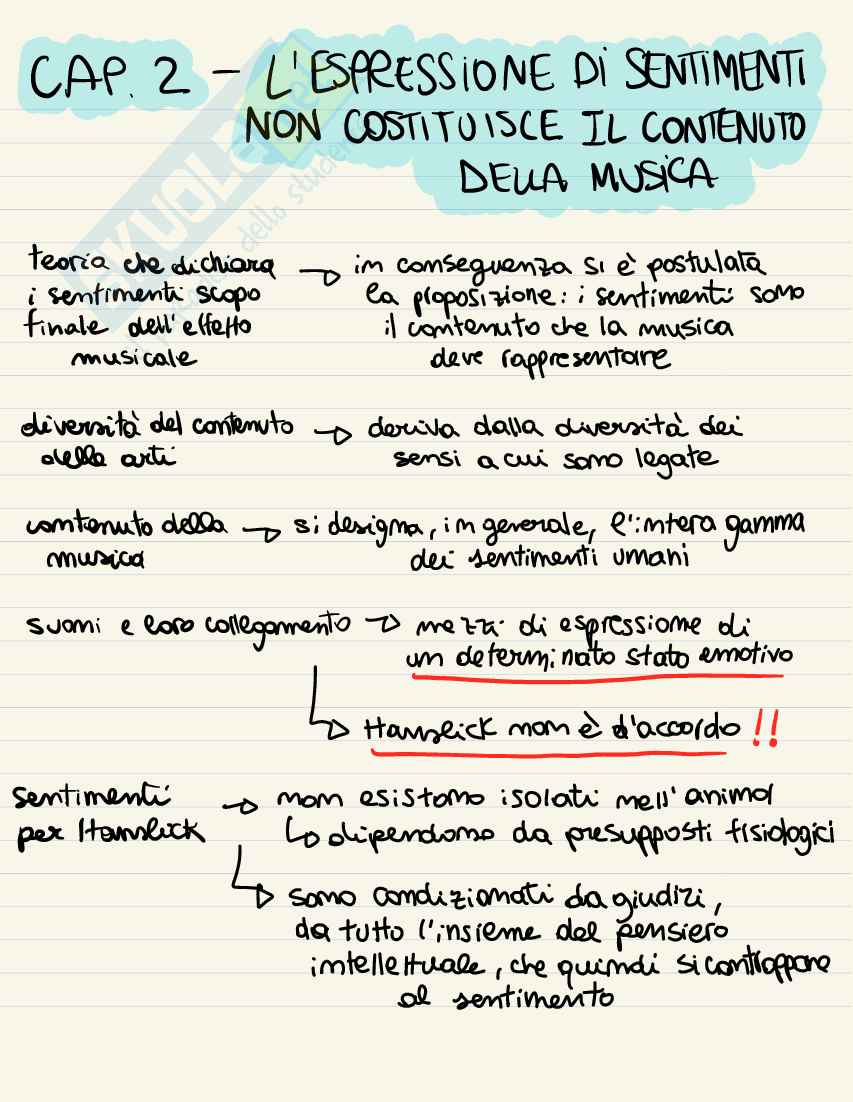 CAP. 2 - L'ESPRESSIONE DI SENTIMENTI
NON COSTITUISCE IL CONTENUTO
DELLA MUSICA
SKUOLA.net
dello studente
teoria che dichiara → in conseguenza si è postulata
i sentimenti scopo la proposizione: i sentimenti sono
finale dell'effetto il contenuto che la musica
musicale deve rappresentare
diversità del contenuto → deriva dalla diversità dei
delle arti sensi a cui sono legate
contenuto della → si designa, in generale, l'intera gamma
musica dei sentimenti umani
suoni e loro collegamento → mezzi di espressione di
un determinato stato emotivo
↳ Hanslick non è d'accordo !!
sentimenti → non esistono isolati nell'anima
per Hanslick ↳ dipendono da presupposti fisiologici
↳ sono condizionati da giudizi,
da tutto l'insieme del pensiero
intellettuale, che quindi si contrappone
al sentimento